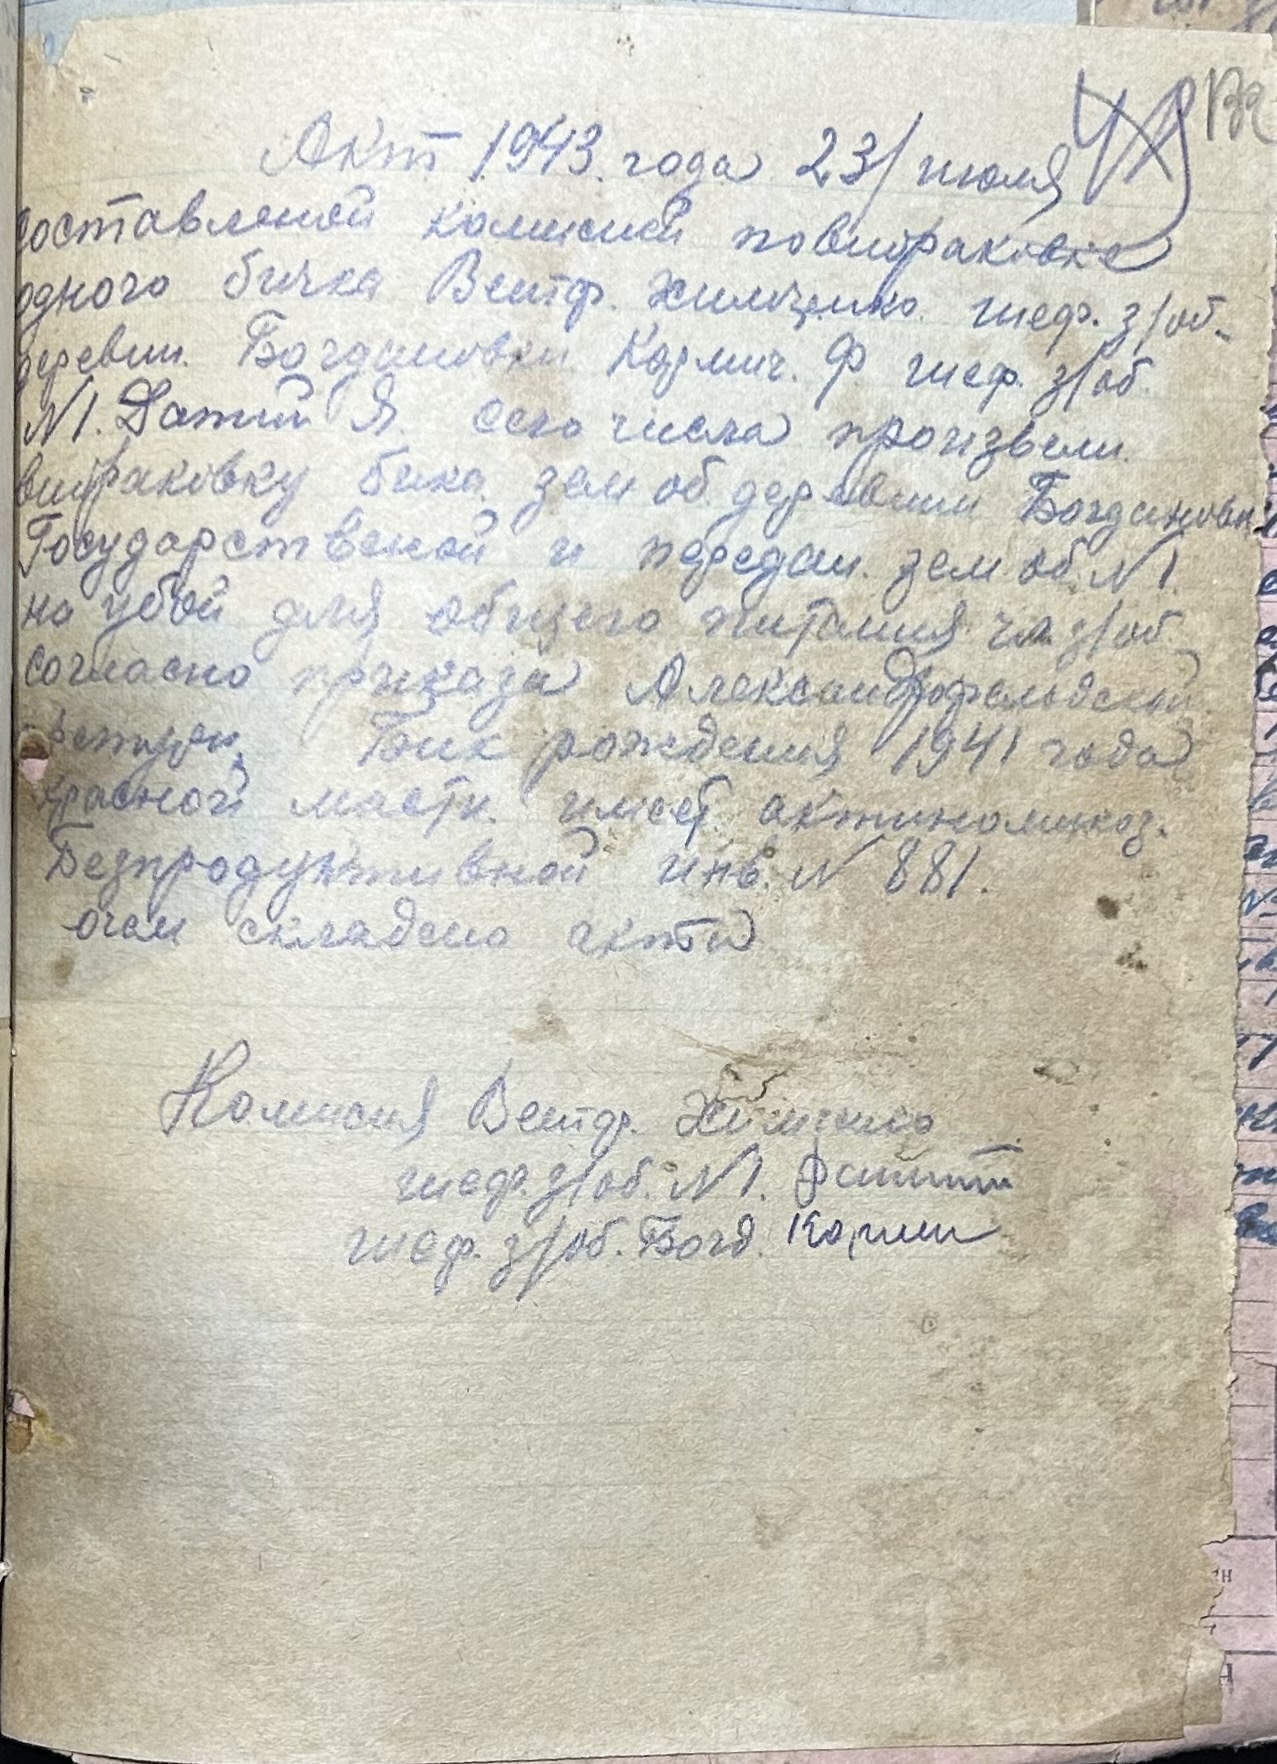 Акт 1943 года 23/июля
составленой комисией повибраковке
одного бичка Ветф. Химченко шеф. з/об.
деревни. Богдановки Кармич. Ф. шеф. з/об.
N1. Я. сего числа произвели
вибраковку бика зем об. деревни Богдановки
Государственой и передан. зем об. N1.
на убой для общего питания чл. з/об.
согласно приказа Александрофельдской
Бик рождения 1941 года
красной масти. имеет актиномикоз.
Безпродуктивной инв. N 881.
очем складено акт
Комисия Ветф.
шеф. з/об. N1.
шеф. з/об. Богд.